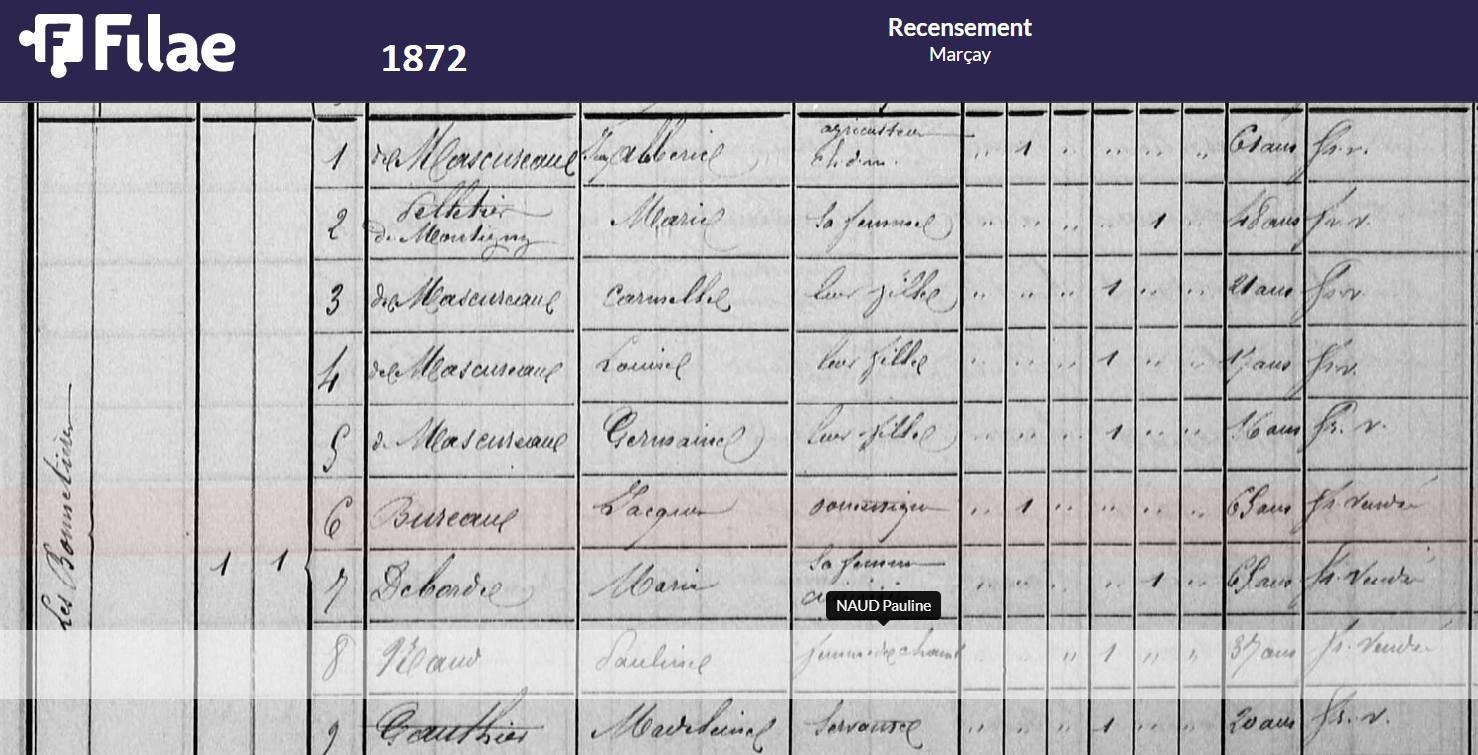 Filae
1872
Recensement
Marçay
1 de Mascureaud Albéric agriculteur 1 61 ans fr. v.
2 Pelletier de Montigny Marie sa femme 1 48 ans fr. v.
3 de Mascureaud leur fille 1 21 ans fr. v.
4 de Mascureaud Louise leur fille 1 17 ans fr. v.
5 de Mascureaud Germaine leur fille 1 16 ans fr. v.
6 Bureau Jacques 1 65 ans fr. Vendée
1 1 7 Deborde Marie sa femme 1 65 ans fr. Vendée
NAUD Pauline
8 Naud Pauline femme de chamb 1 37 ans fr. Vendée
9 Gauthier Madeleine servante 1 20 ans fr. v.
Les